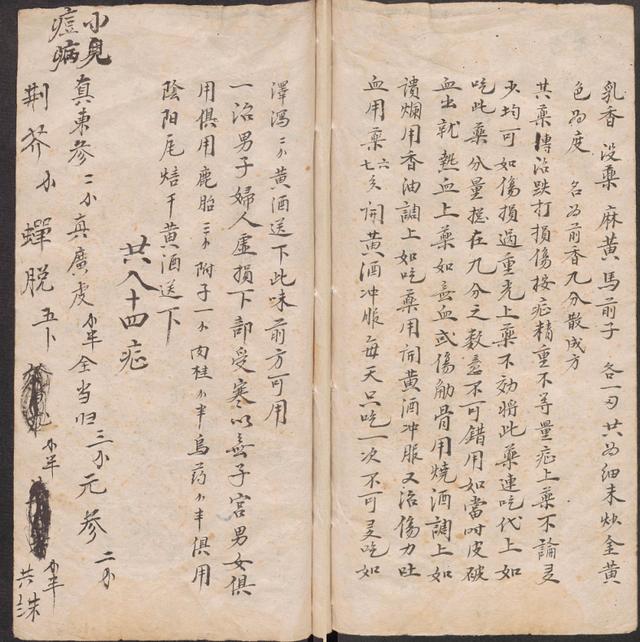 乳香 没藥 麻黄 馬前子 各一匁 共为细末炒金黄
色为度 名为前香九分散成方
共藥專治跌打損傷按症精重不等量症上藥不論灵
少均可如傷損過重先上藥不効將此藥連吃代上如
吃此藥分量提在九分之数意不可錯用如當時皮破
血出就热血上藥如無血或傷觔骨用燒酒調上如
潰爛用香油調上如吃藥用開黄酒冲服又治傷力吐
血用藥六七分開黄酒冲服每天只吃一次不可灵吃如
澤瀉二分黄酒送下此味前方可用
一治男子婦人虛損下部受寒以無子宫男女俱
用俱用鹿胎三分附子一分肉桂分半烏药分半俱用
陰阳尾焙干黄酒送下
共八十四症
小兒
痘病
真東参二分真廣皮分半全当归三分元参二分
荆芥分蟬脱五下 分半 分半